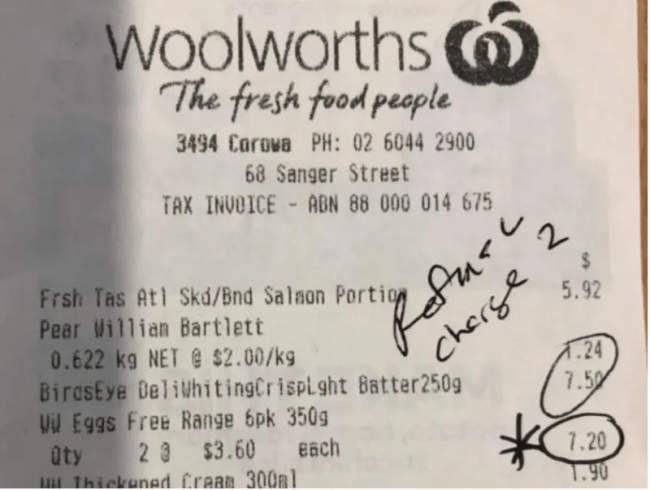 Woolworths
The fresh food people
3494 Corowa PH: 02 6044 2900
68 Sanger Street
TAX INVOICE - ABN 88 000 014 675
charge 2
$
Frsh Tas Atl Skd/Bnd Salmon Portion 5.92
Pear William Bartlett
0.622 kg NET @ $2.00/kg 1.24
BirdsEye DeliWhitingCrispLght Batter250g 7.50
WW Eggs Free Range 6pk 350g
Qty 2 @ $3.60 each 7.20
WW Thickened Cream 300ml 1.90